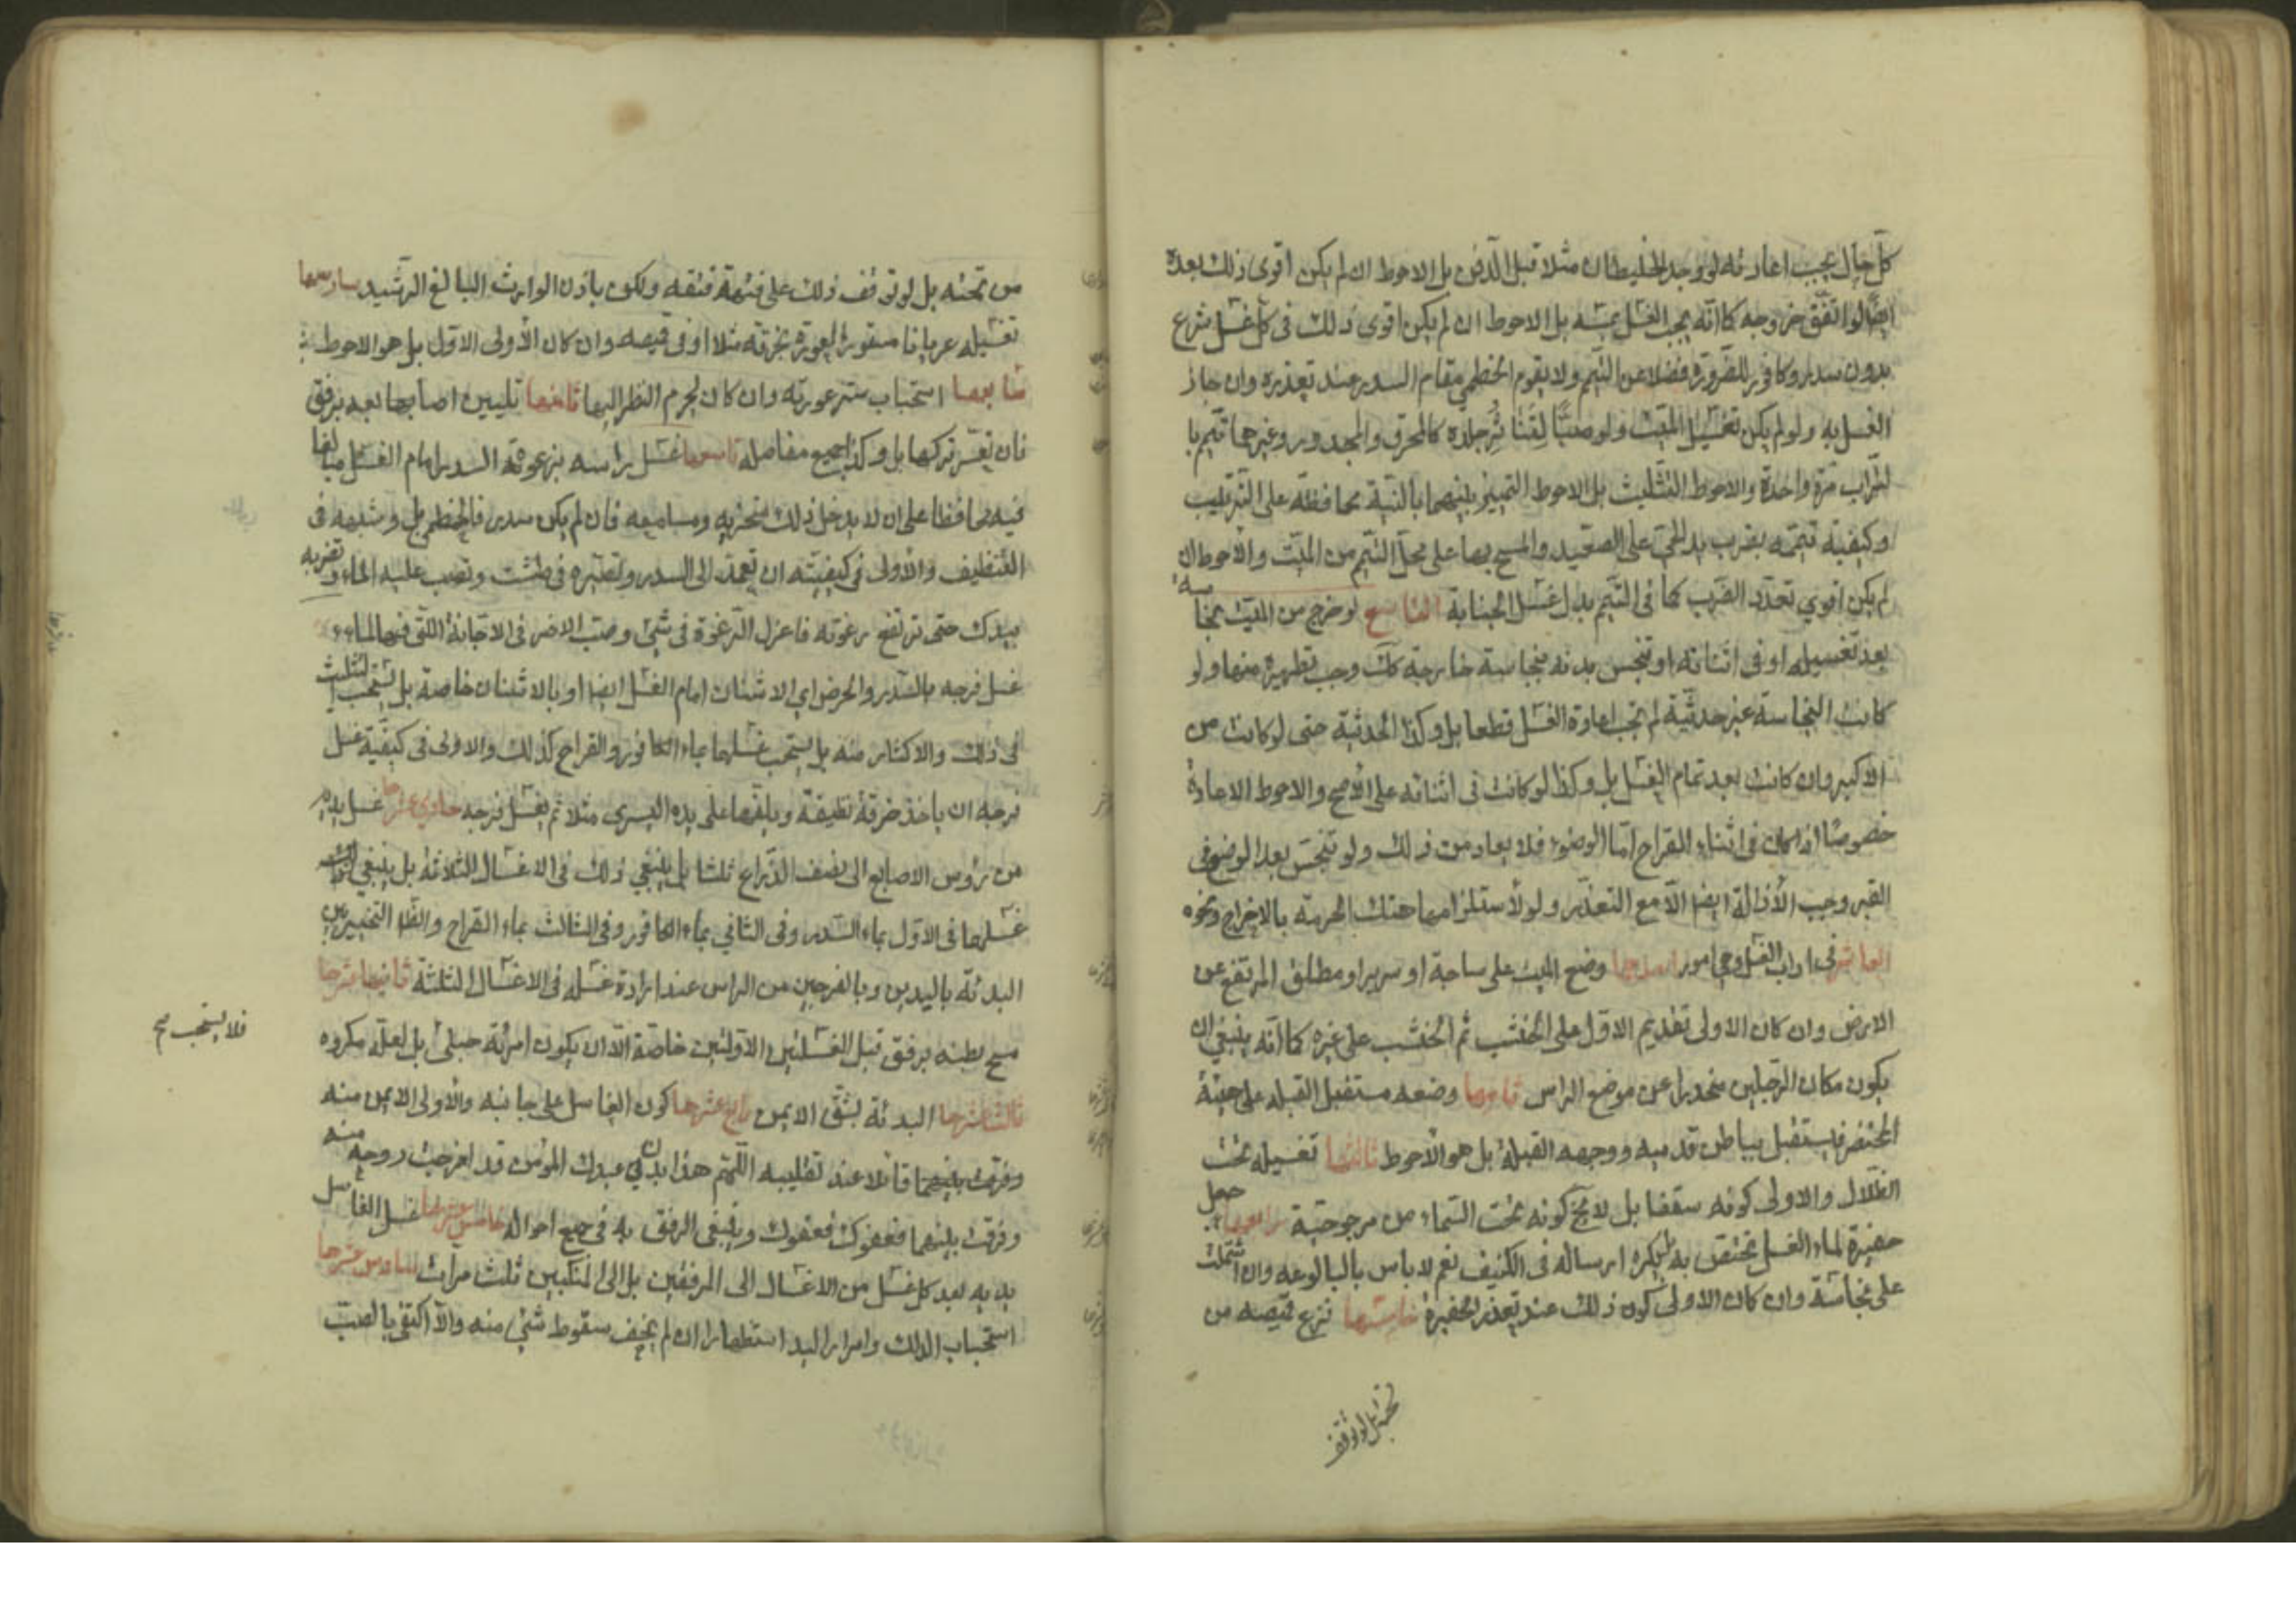 كل حال يجب اعادته لو وجد الخليطان مثلا قبل الدفن بل الاحوط ان لم يكن اقوى ذلك بعده
ايضا لو اتفق خروجه كما انه يجب الغسل بمسه بل الاحوط ان لم يكن اقوى ذلك في كل غسل شرع
بدون سدر وكافور للضرورة فضلا عن التيمم ولا يقوم الخطمي مقام السدر عند تعذره وان جاز
الغسل به ولو لم يكن تغسيل الميت ولو صبا لتناثر جلده كالمحرق والمجدور وغيرهما تيمم با
لتراب مرة واحدة والاحوط التثليث بل الاحوط التمييز بينهما بالنية محافظة على الترتيب
وكيفيته تيممه بضرب يد الحي على الصعيد والمسح بها على محل التيمم من الميت والاحوط ان
لم يكن اقوي تعدد الضرب كما في التيمم بدل غسل الجنابة التاسع لو خرج من الميت نجاسة
بعد تغسيله او في اثنائه او تنجس بدنه بنجاسة خارجة كك وجب تطهيره منها ولو
كانت النجاسة غير حدثية لم تجب اعادة الغسل قطعا بل وكذا الحدثية حتى لو كانت من
الاكبر وان كانت بعد تمام الغسل بل وكذا لو كانت في اثنائه على الاصح والاحوط الاعادة
خصوصا اذا كان في اثناء القراح اما الوضوء فلا يعاد من ذلك ولو تنجس بعد الوضع في
القبر وجب الازالة ايضا الا مع التعذر ولو لاستلزامها هتك الحرمة بالاخراج ونحوه
العاشر في اداب الغسل وهي امور احدها وضع الميت على ساجة او سرير او مطلق المرتفع عن
الارض وان كان الاولى تقديم الاول على الخشب ثم الخشب على غيره كما انه ينبغي ان
يكون مكان الرجلين منحدرا عن موضع الراس ثانيها وضعه مستقبل القبلة على هيئة
المحتضر فيستقبل بباطن قدميه ووجهه القبلة بل هو الاحوط ثالثها تغسيله تحت
الظلال والاولى كونه سقفا بل لا يخ كونه تحت السماء من مرجوحية رابعها جعل
حفيرة لماء الغسل تختص به بل يكره ارساله في الكنيف نعم لا باس بالبالوعة وان اشتملت
على نجاسة وان كان الاولى كون ذلك عند تعذر الحفيرة خامسها نزع قميصه من
تحته بل لو توقف
من تحته بل لو توقف ذلك على فتقه فتقه ولكن باذن الوارث البالغ الرشيد سادسها
تغسيله عريانا مستور العورة بخرقة مثلا او في قميصه وان كان الاولى الاول بل هو الاحوط
سابعها استحباب ستر عورته وان كان يحرم النظر اليها ثامنها تليين اصابعه برفق
فان تعسر تركها بل وكذا جميع مفاصله تاسعها غسل راسه برغوة السدر امام الغسل مبالغا
فيه محافظا على ان لا يدخل ذلك منخريه ومسامعه فان لم يكن سدر فالخطمي وشبهه في
التنظيف والاولى في كيفيته ان تعمد الى السدر وتصيره في طشت وتصب عليه الماء وتضربه
بيدك حتى ترتفع رغوته فاعزل الرغوة في شئ وصب الاخر في الاجانة التي فيها الماء
غسل فرجه بالسدر والحرض اي الاشنان امام الغسل ايضا او بالاشنان خاصة بل يستحب التثليث
في ذلك والاكثار منه بل يستحب غسلها بماء الكافور والقراح كذلك والاولى في كيفية غسل
فرجه ان ياخذ خرقة نظيفة ويلفها على يده اليسرى مثلا ثم يغسل فرجه حادي عشرها غسل يديه
من رؤس الاصابع الى نصف الذراع ثلثا بل ينبغي ذلك في الاغسال الثلاثة بل ينبغي
غسلهما في الاول بماء السدر وفي الثاني بماء الكافور وفي الثالث بماء القراح والظ التخيير بين
البدئة باليدين وبالفرجين من الراس عند ارادة غسله في الاغسال الثلثة ثانيها عشرها
مسح بطنه برفق قبل الغسلتين الاولتين خاصة الا ان يكون امرئة حبلى بل لعله مكروه
فلا يستحب صح
ثالث عشرها البدئة بشق الايمن رابع عشرها كون الغاسل على جانبه والاولى الايمن منه
وفرقت بينهما قائلا عند تقليبه اللهم هذا بدن عبدك المؤمن قد اخرجت روحه منه
وفرقت بينهما فعفوك فعفوك وينبغي الرفق به في جميع احواله خامس عشرها غسل الغاسل
يديه بعد كل غسل من الاغسال الى المرفقين بل الى المنكبين ثلث مرات سادس عشرها
استحباب الدلك وامرار اليد استظهارا ان لم يخف سقوط شئ منه والا اكتفى بالصب